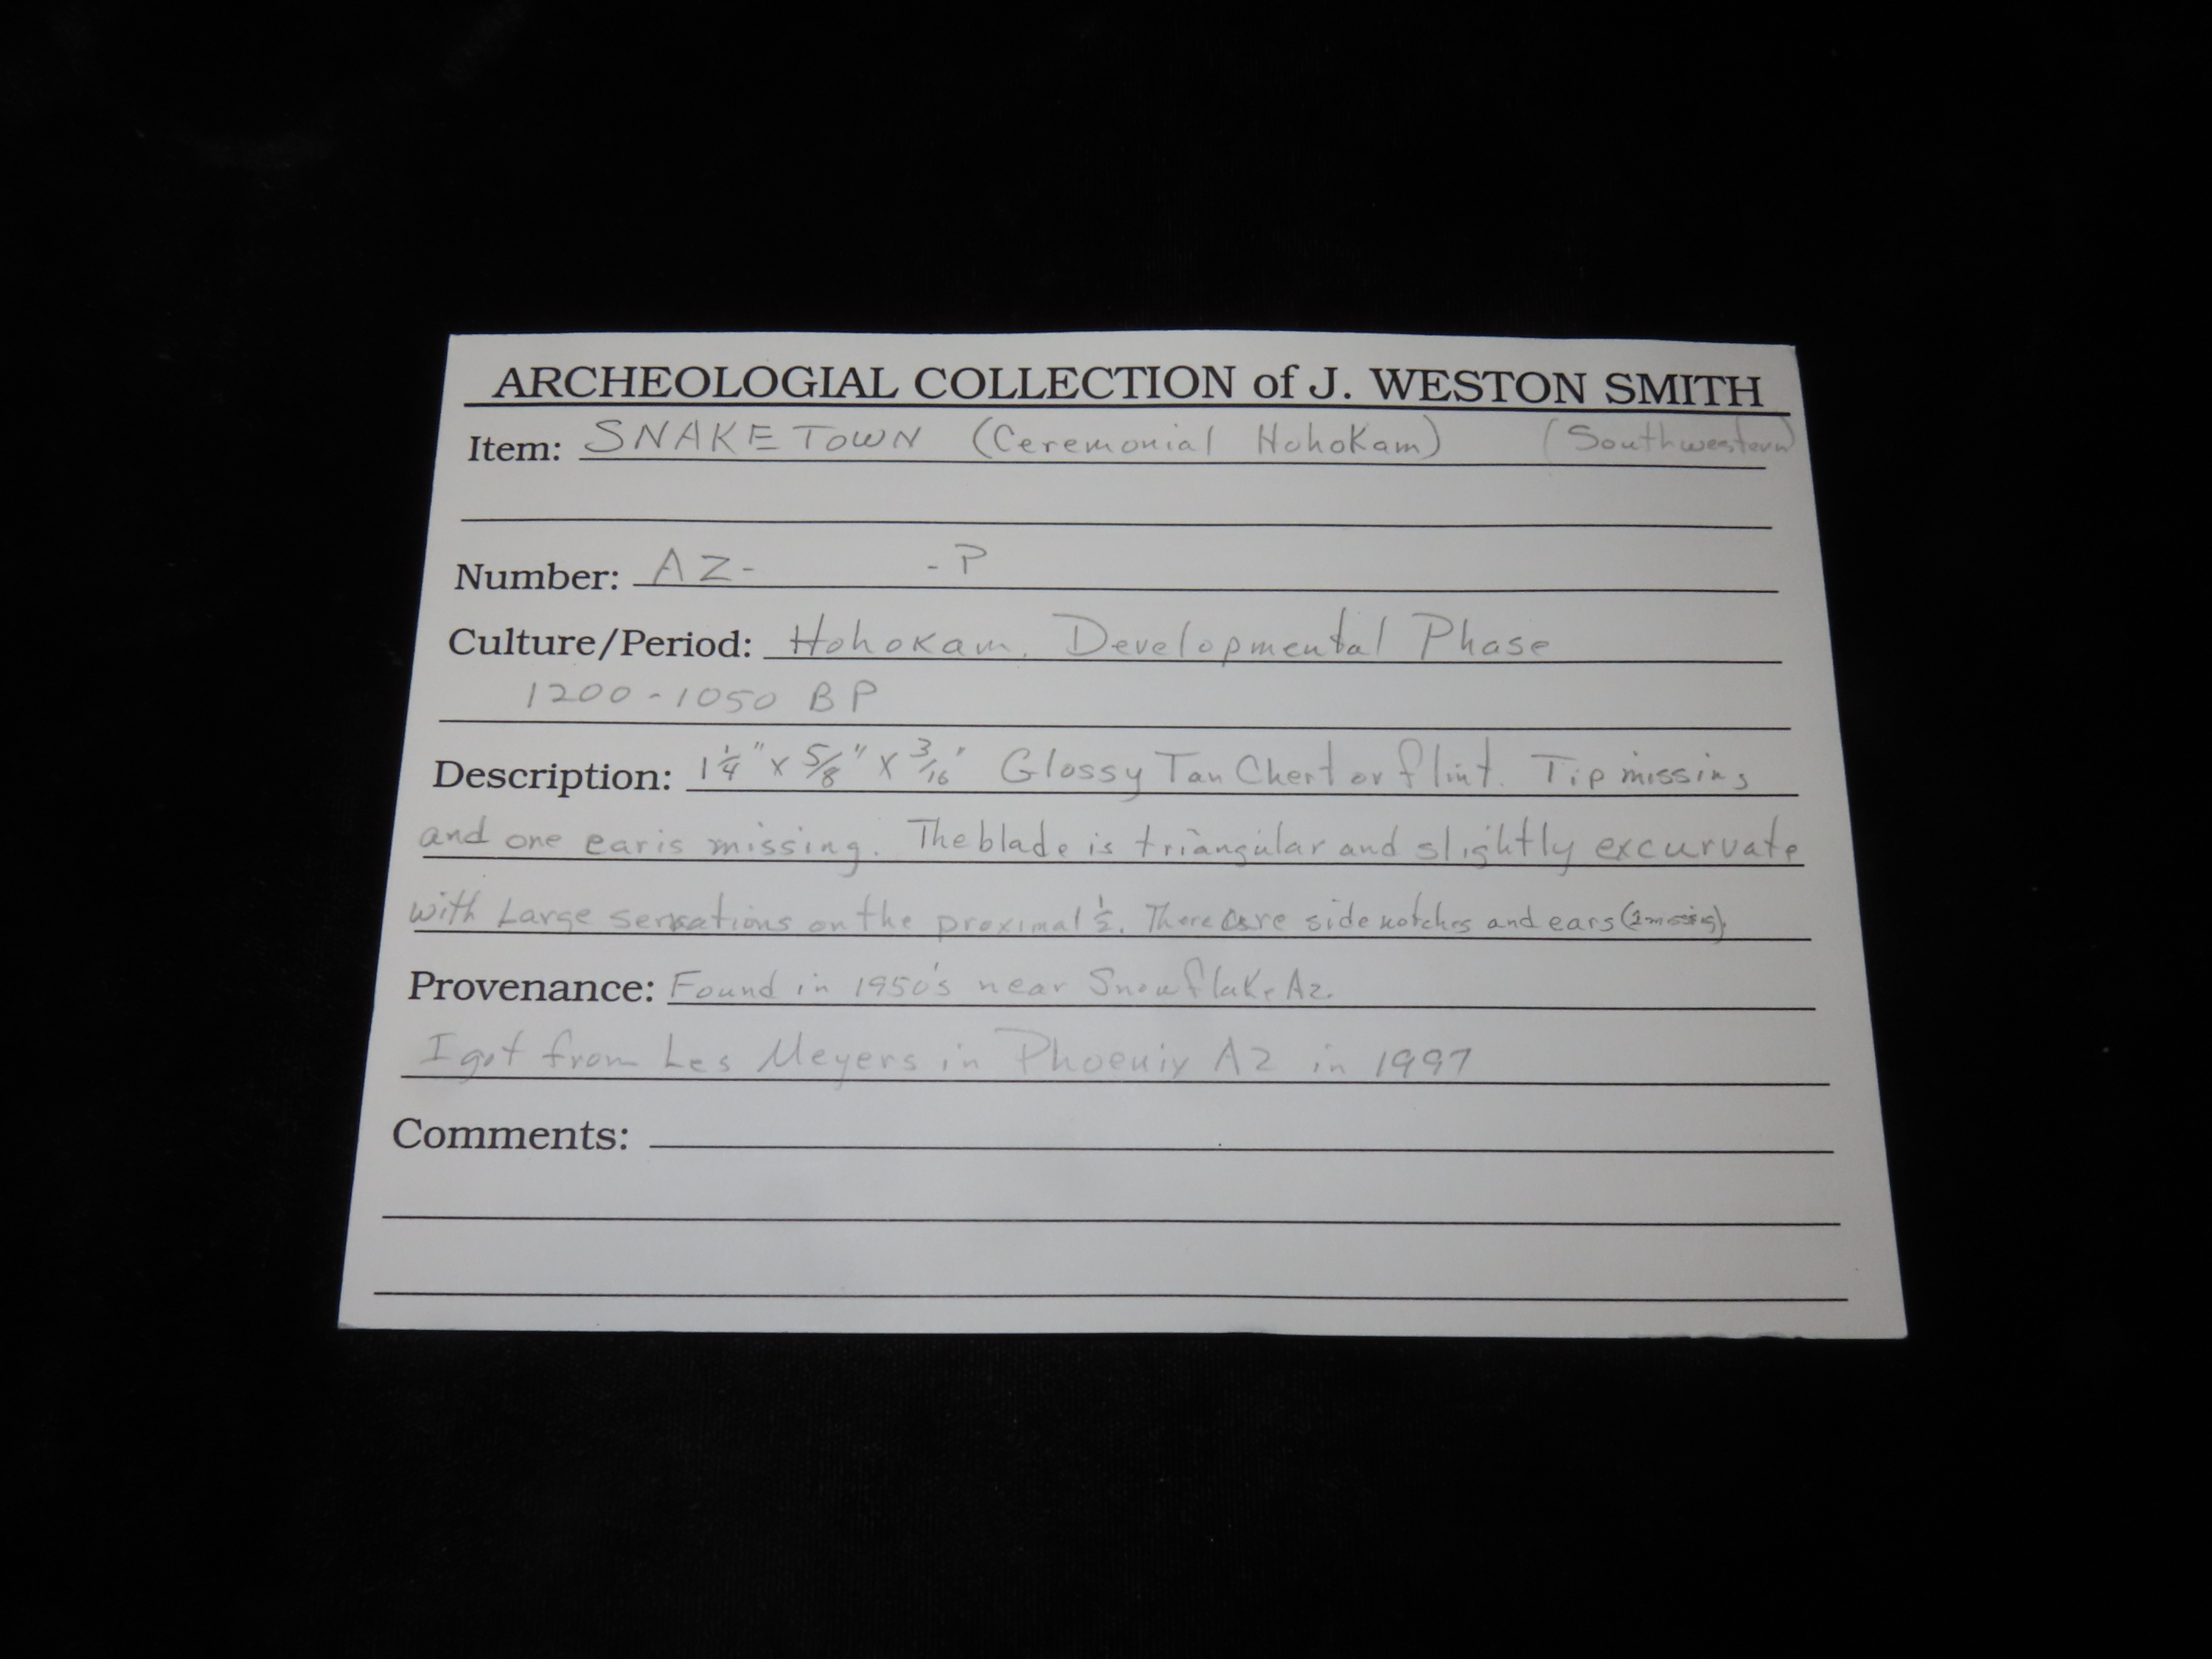 ARCHEOLOGIAL COLLECTION of J. WESTON SMITH
Item: SNAKETOWN (Ceremonial Hohokam) (Southwestern)
Number: AZ- -P
Culture/Period: Hohokam, Developmental Phase
1200-1050 BP
Description: 1 1/4" x 5/8" x 3/16" Glossy Tan Chert or flint. Tip missing
and one ear is missing. The blade is triangular and slightly excurvate
with Large serrations on the proximal 1/2. There are side notches and ears (1 missing).
Provenance: Found in 1950's near Snowflake Az.
I got from Les Meyers in Phoenix AZ in 1997
Comments: